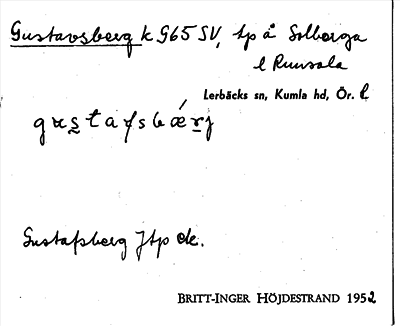 Gustavsberg k G65 SV, tp å Solberga
l Runsala
Lerbäcks sn, Kumla hd, Ör. l
Gustafsberg Jtp ek.
BRITT-INGER HÖJDESTRAND 1952